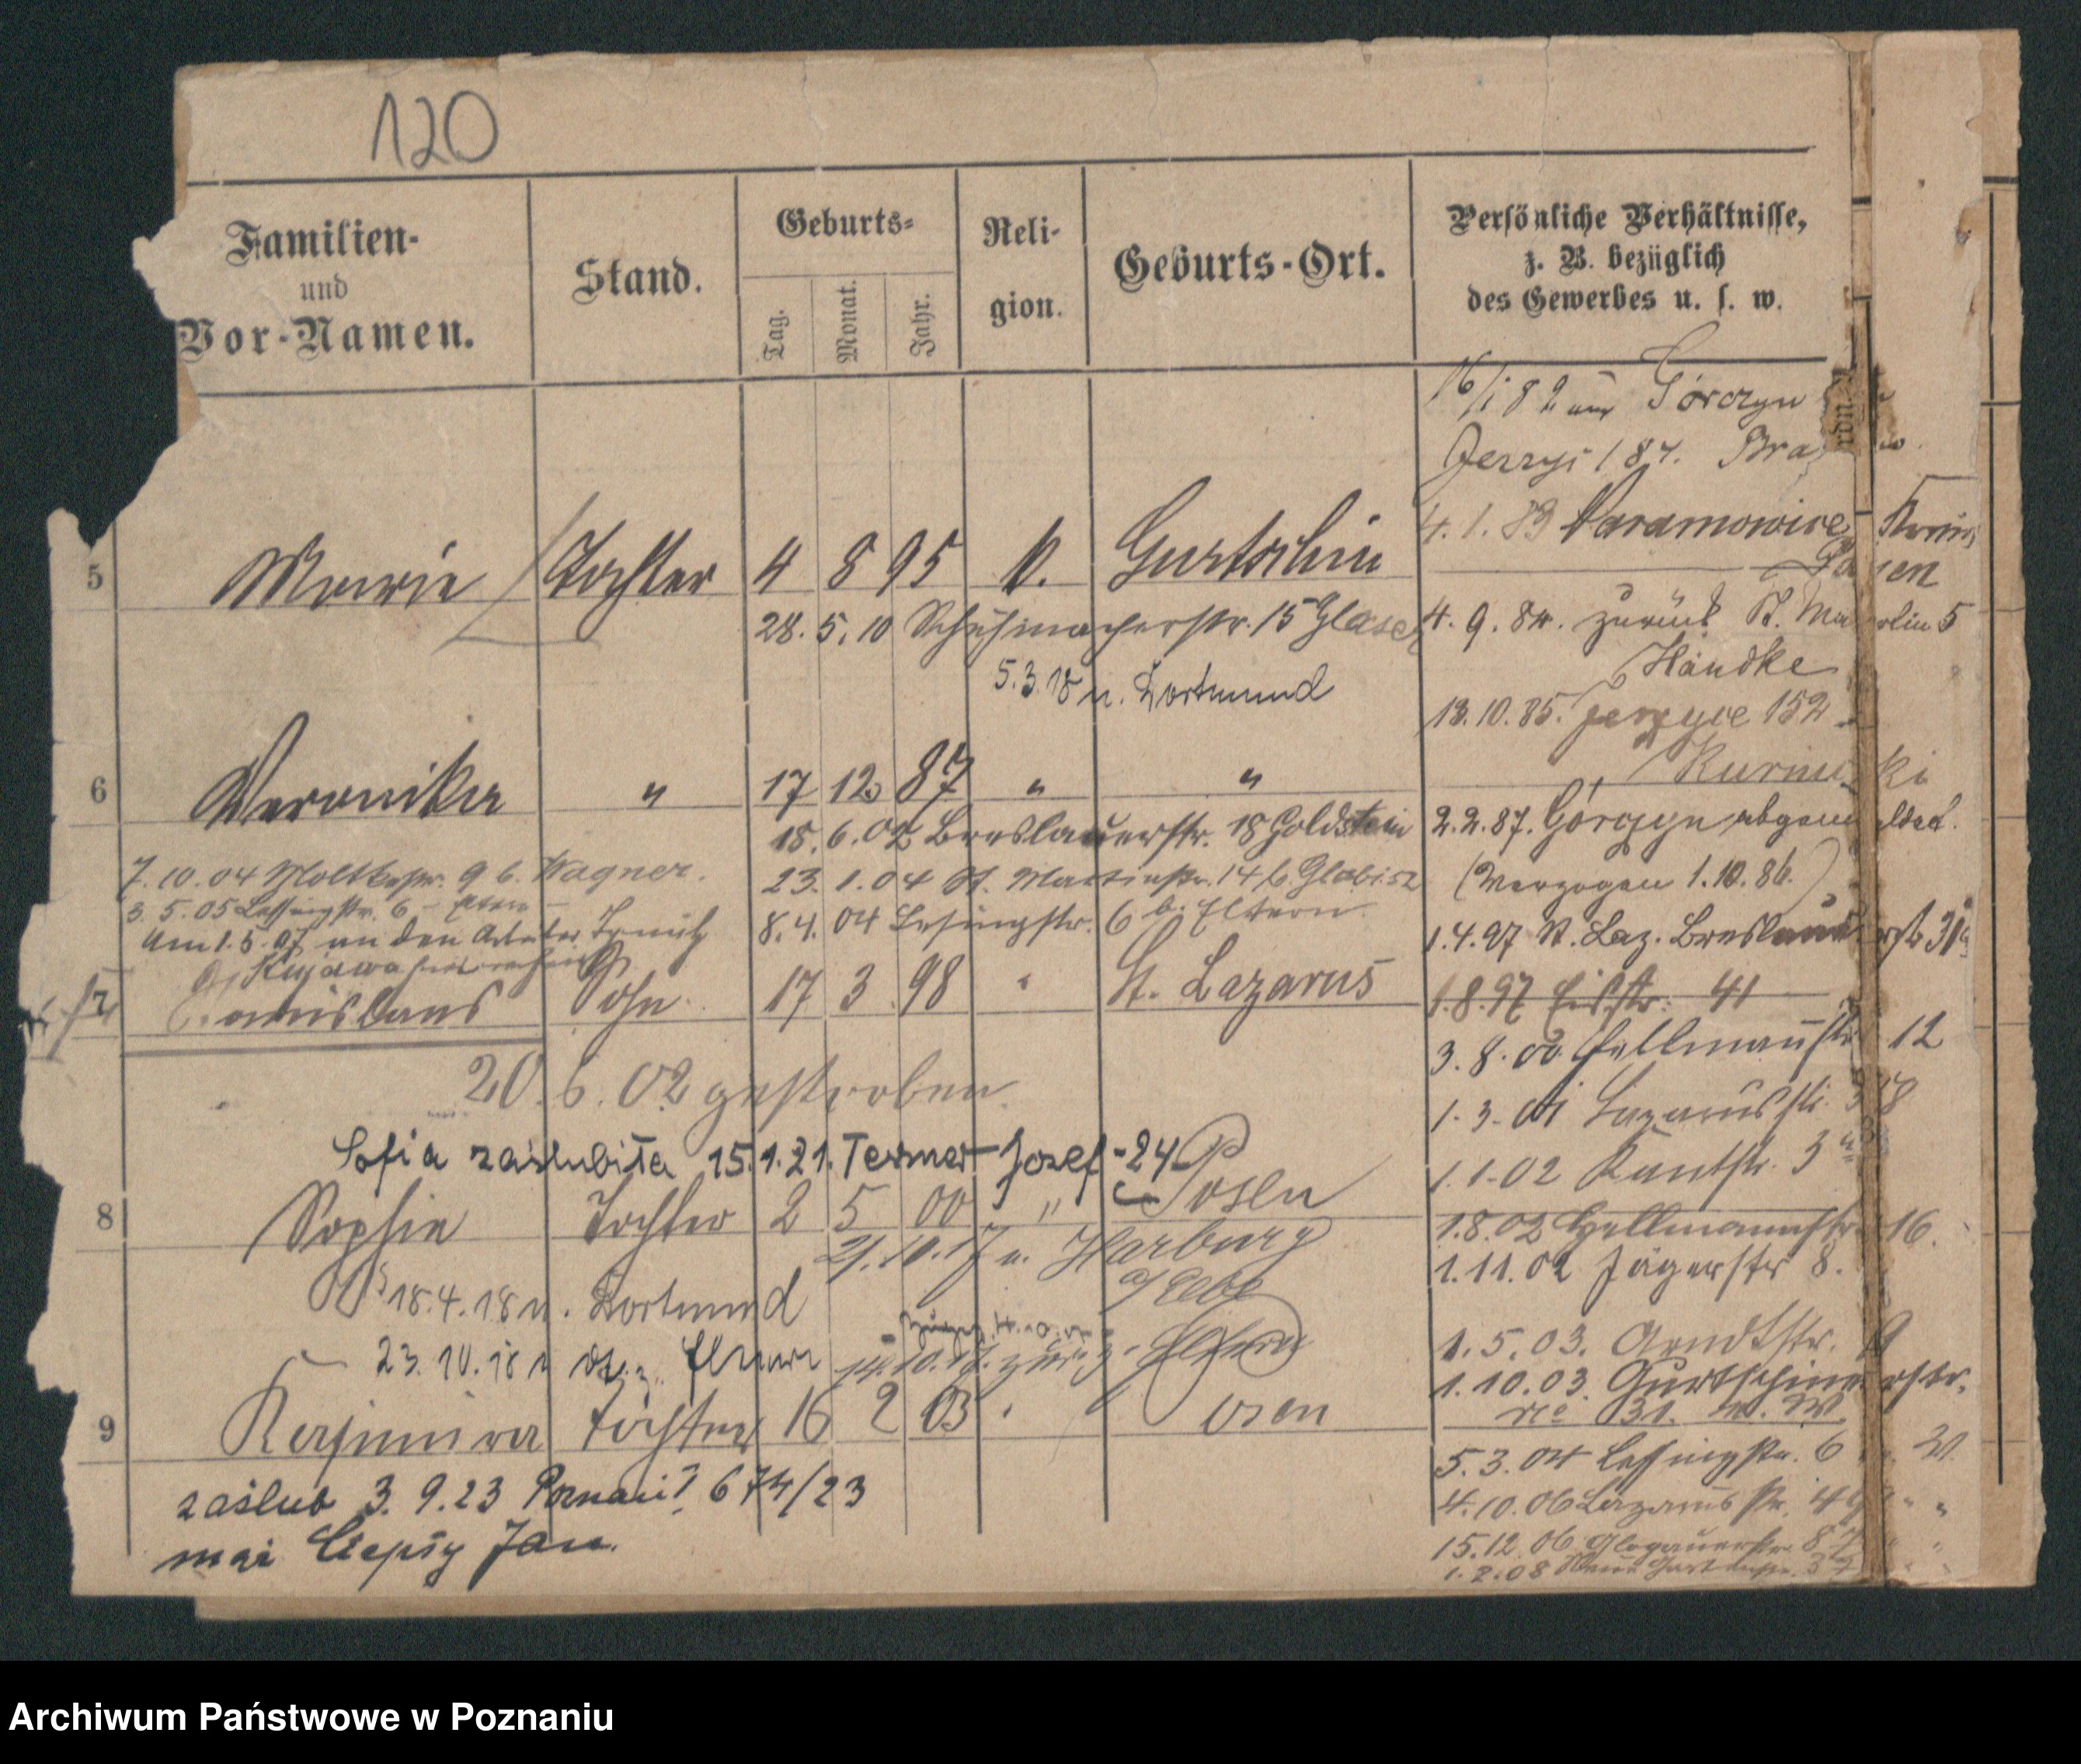 120
Familien-
und
Vor-Namen.
Stand.
Geburts-
Tag.
Monat.
Jahr.
Reli-
gion.
Geburts-Ort.
Persönliche Verhältnisse,
z. B. bezüglich
des Gewerbes u. s. w.
5 Marie Tochter 4 8 95 k. Gurtschin
28. 5. 10 Schuhmacherstr. 15 Glaser
5. 3. 18 n. Dortmund
6 Veronika " 17 12 87 " "
15. 6. 02 Breslauerstr. 18 Goldstein
7. 10. 04 Moltkestr. 9 b. Wagner.
23. 1. 04 St. Martinstr. 14 b. Glabisz
3. 5. 05 Lessingstr. 6 - Eltern -
8. 4. 04 Lessingstr. 6 b. Eltern.
Am 1. 5. 07 an den Arbeiter Ignatz
Kujawa
7 Sohn 17 3 98 " St. Lazarus
20. 6. 02 gestorben.
Sofia zaślubiła 15. 1. 21. Termer Jozef - 24
8 Sophie Tochter 2 5 00 " Posen
21. 10. 17 n. Harburg
a/Elbe
18. 4. 18 n. Dortmund
23. 10. 18 Eltern
14. 10. 17. zur. z. Eltern
9 Kasimira Tochter 16 2 03 " Posen
zaślub 3. 9. 23 Poznań 674/23
mąż Ciepły Jan.
Górczyn
Jerzyi 187.
4. 1. 83
Posen
4. 9. 84. zurück St. Martin 5
Handke
13. 10. 85. Jerzyce 152
2. 2. 87. Górczyn abgemeldet.
(Verzogen 1. 10. 86.)
1. 4. 97 St. Laz. Breslauerstr 31a
1. 8. 97 Eisstr. 41
3. 8. 00 Hellmannstr 12
1. 3. 01 Lazarusstr. 38
1. 1. 02 Kantstr. 3a
1. 8. 02 Hellmannstr 16.
1. 11. 02 Jägerstr 8.
1. 5. 03. Arndtstr. 9
1. 10. 03. Gurtschinerstr.
31. n. W.
5. 3. 04 Lessingstr. 6 W.
4. 10. 06 Lazarusstr. " "
15. 12. 06 Glogauerstr. 87
1. 2. 08 Neue Gartenstr.
Archiwum Państwowe w Poznaniu